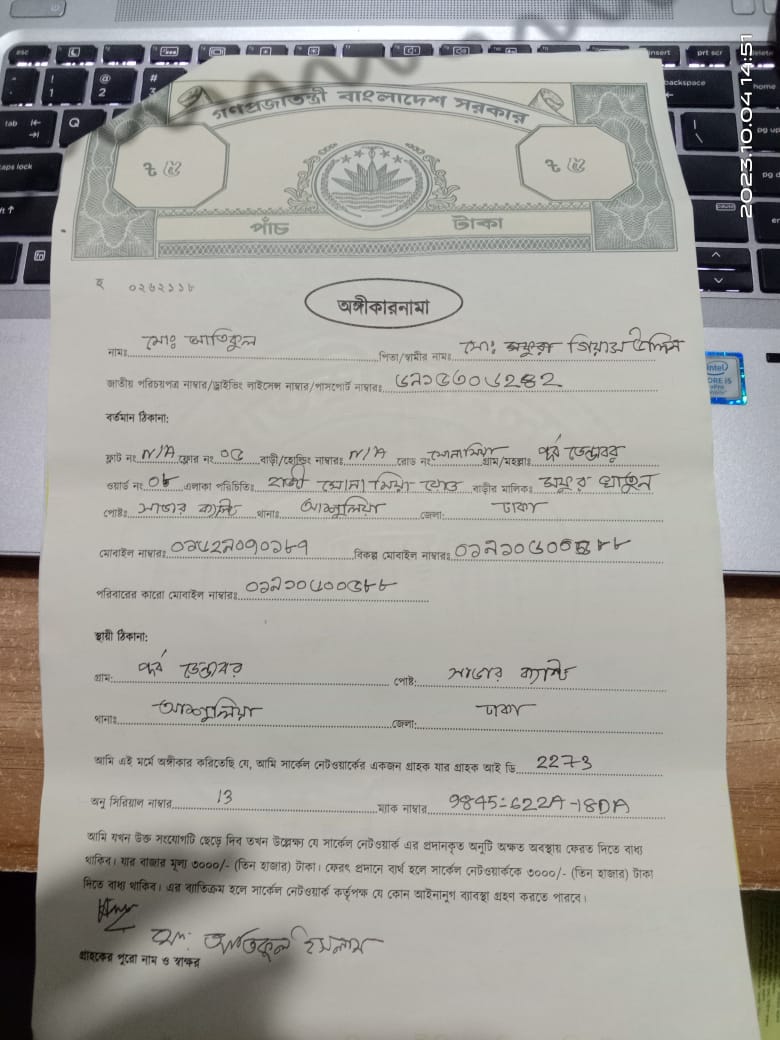 গণপ্রজাতন্ত্রী বাংলাদেশ সরকার
৳ ৫ ৳ ৫
পাঁচ টাকা
হ ০২৬২১১৮
অঙ্গীকারনামা
নামঃ মোঃ আতিকুল পিতা/স্বামীর নাম: মোঃ গিয়াস উদ্দিন
জাতীয় পরিচয়পত্র নাম্বার/ড্রাইভিং লাইসেন্স নাম্বার/পাসপোর্ট নাম্বারঃ
বর্তমান ঠিকানা:
ফ্লাট নং N/A ফ্লোর নং ০৫ বাড়ী/হোল্ডিং নাম্বারঃ N/A রোড নং সোনামিয়া গ্রাম/মহল্লাঃ পূর্ব ডেন্ডাবর
ওয়ার্ড নং ০৮ এলাকা পরিচিতিঃ হাজী সোনা মিয়া রোড বাড়ীর মালিকঃ খাতুন
পোষ্টঃ সাভার ক্যান্ট থানাঃ আশুলিয়া জেলা: ঢাকা
মোবাইল নাম্বারঃ বিকল্প মোবাইল নাম্বারঃ
পরিবারের কারো মোবাইল নাম্বারঃ
স্থায়ী ঠিকানা:
গ্রাম: পূর্ব ডেন্ডাবর পোষ্ট: সাভার ক্যান্ট
থানাঃ আশুলিয়া জেলা: ঢাকা
আমি এই মর্মে অঙ্গীকার করিতেছি যে, আমি সার্কেল নেটওয়ার্কের একজন গ্রাহক যার গ্রাহক আই ডি 2273
অনু সিরিয়াল নাম্বার 13 ম্যাক নাম্বার 9845:622A-18DA
আমি যখন উক্ত সংযোগটি ছেড়ে দিব তখন উল্লেক্ষ্য যে সার্কেল নেটওয়ার্ক এর প্রদানকৃত অনুটি অক্ষত অবস্থায় ফেরত দিতে বাধ্য
থাকিব। যার বাজার মূল্য ৩০০০/- (তিন হাজার) টাকা। ফেরৎ প্রদানে ব্যর্থ হলে সার্কেল নেটওয়ার্ককে ৩০০০/- (তিন হাজার) টাকা
দিতে বাধ্য থাকিব। এর ব্যতিক্রম হলে সার্কেল নেটওয়ার্ক কর্তৃপক্ষ যে কোন আইনানুগ ব্যবস্থা গ্রহণ করতে পারবে।
মো: আতিকুল ইসলাম
গ্রাহকের পুরো নাম ও স্বাক্ষর
2023.10.04 14:51
esc
insert
prt scr
delete
backspace
home
tab
Q
pg up
caps lock
pg d
alt
end
intel
CORE i5
vPro